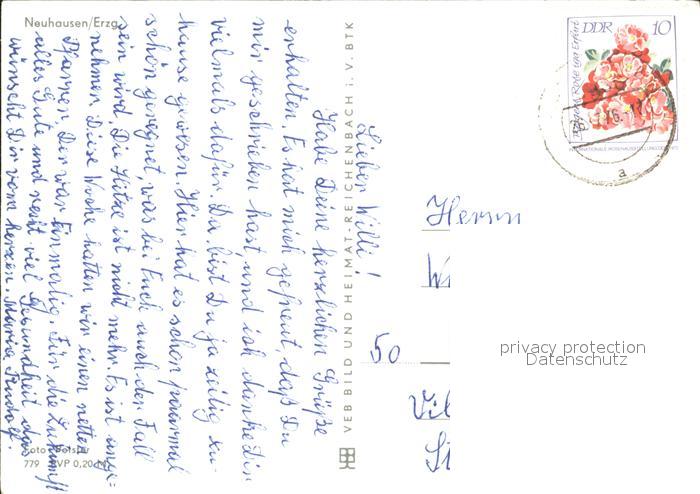 Neuhausen/Erzg.
Lieber Willi!
Habe Deine herzlichen Grüße
erhalten. Es hat mich gefreut, daß Du
mir geschrieben hast, und ich danke Dir
vielmals dafür. Du bist Du ja zeitig zu-
hause gewesen. Hier hat es schon paarmal
schön geregnet, was bei Euch auch der Fall
sein wird. Die Hitze ist nicht mehr. Es ist ange=
nehmer. Diese Woche hatten wir einen netten
Pfarrer, Der war Einmalig. Für die Zukunft
alles Gute und recht viel Gesundheit das
wünscht Dir vom herzen. Maria
779 EVP 0,20 M
VEB BILD UND HEIMAT · REICHENBACH i. V. BTK
DDR 10
INTERNATIONALE ROSENAUSSTELLUNG DDR 1972
a
Herrn
Wi
50
Vil
privacy protection
Datenschutz